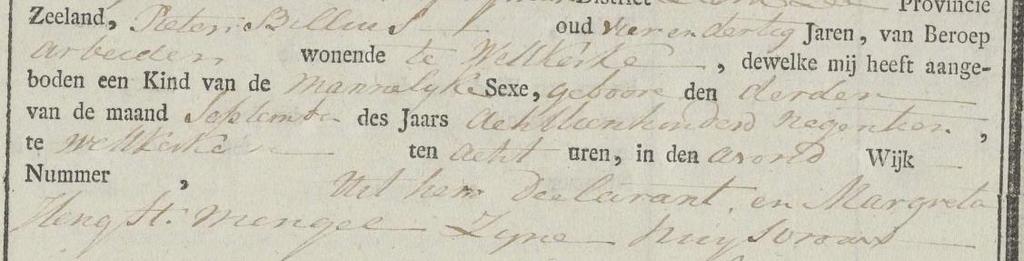 District Provincie
Zeeland, Pieter Billius oud vier en dertig Jaren, van Beroep
arbeider wonende te Welkerke, dewelke mij heeft aange-
boden een Kind van de mannelyke Sexe, geboore den derden
van de maand September des Jaars achttienhonderd negentien,
te Welkerke ten acht uren, in den avond Wijk
Nummer , Uit hem Declarant, en Margreta
Hengst. mengel Zyne huysvrouw